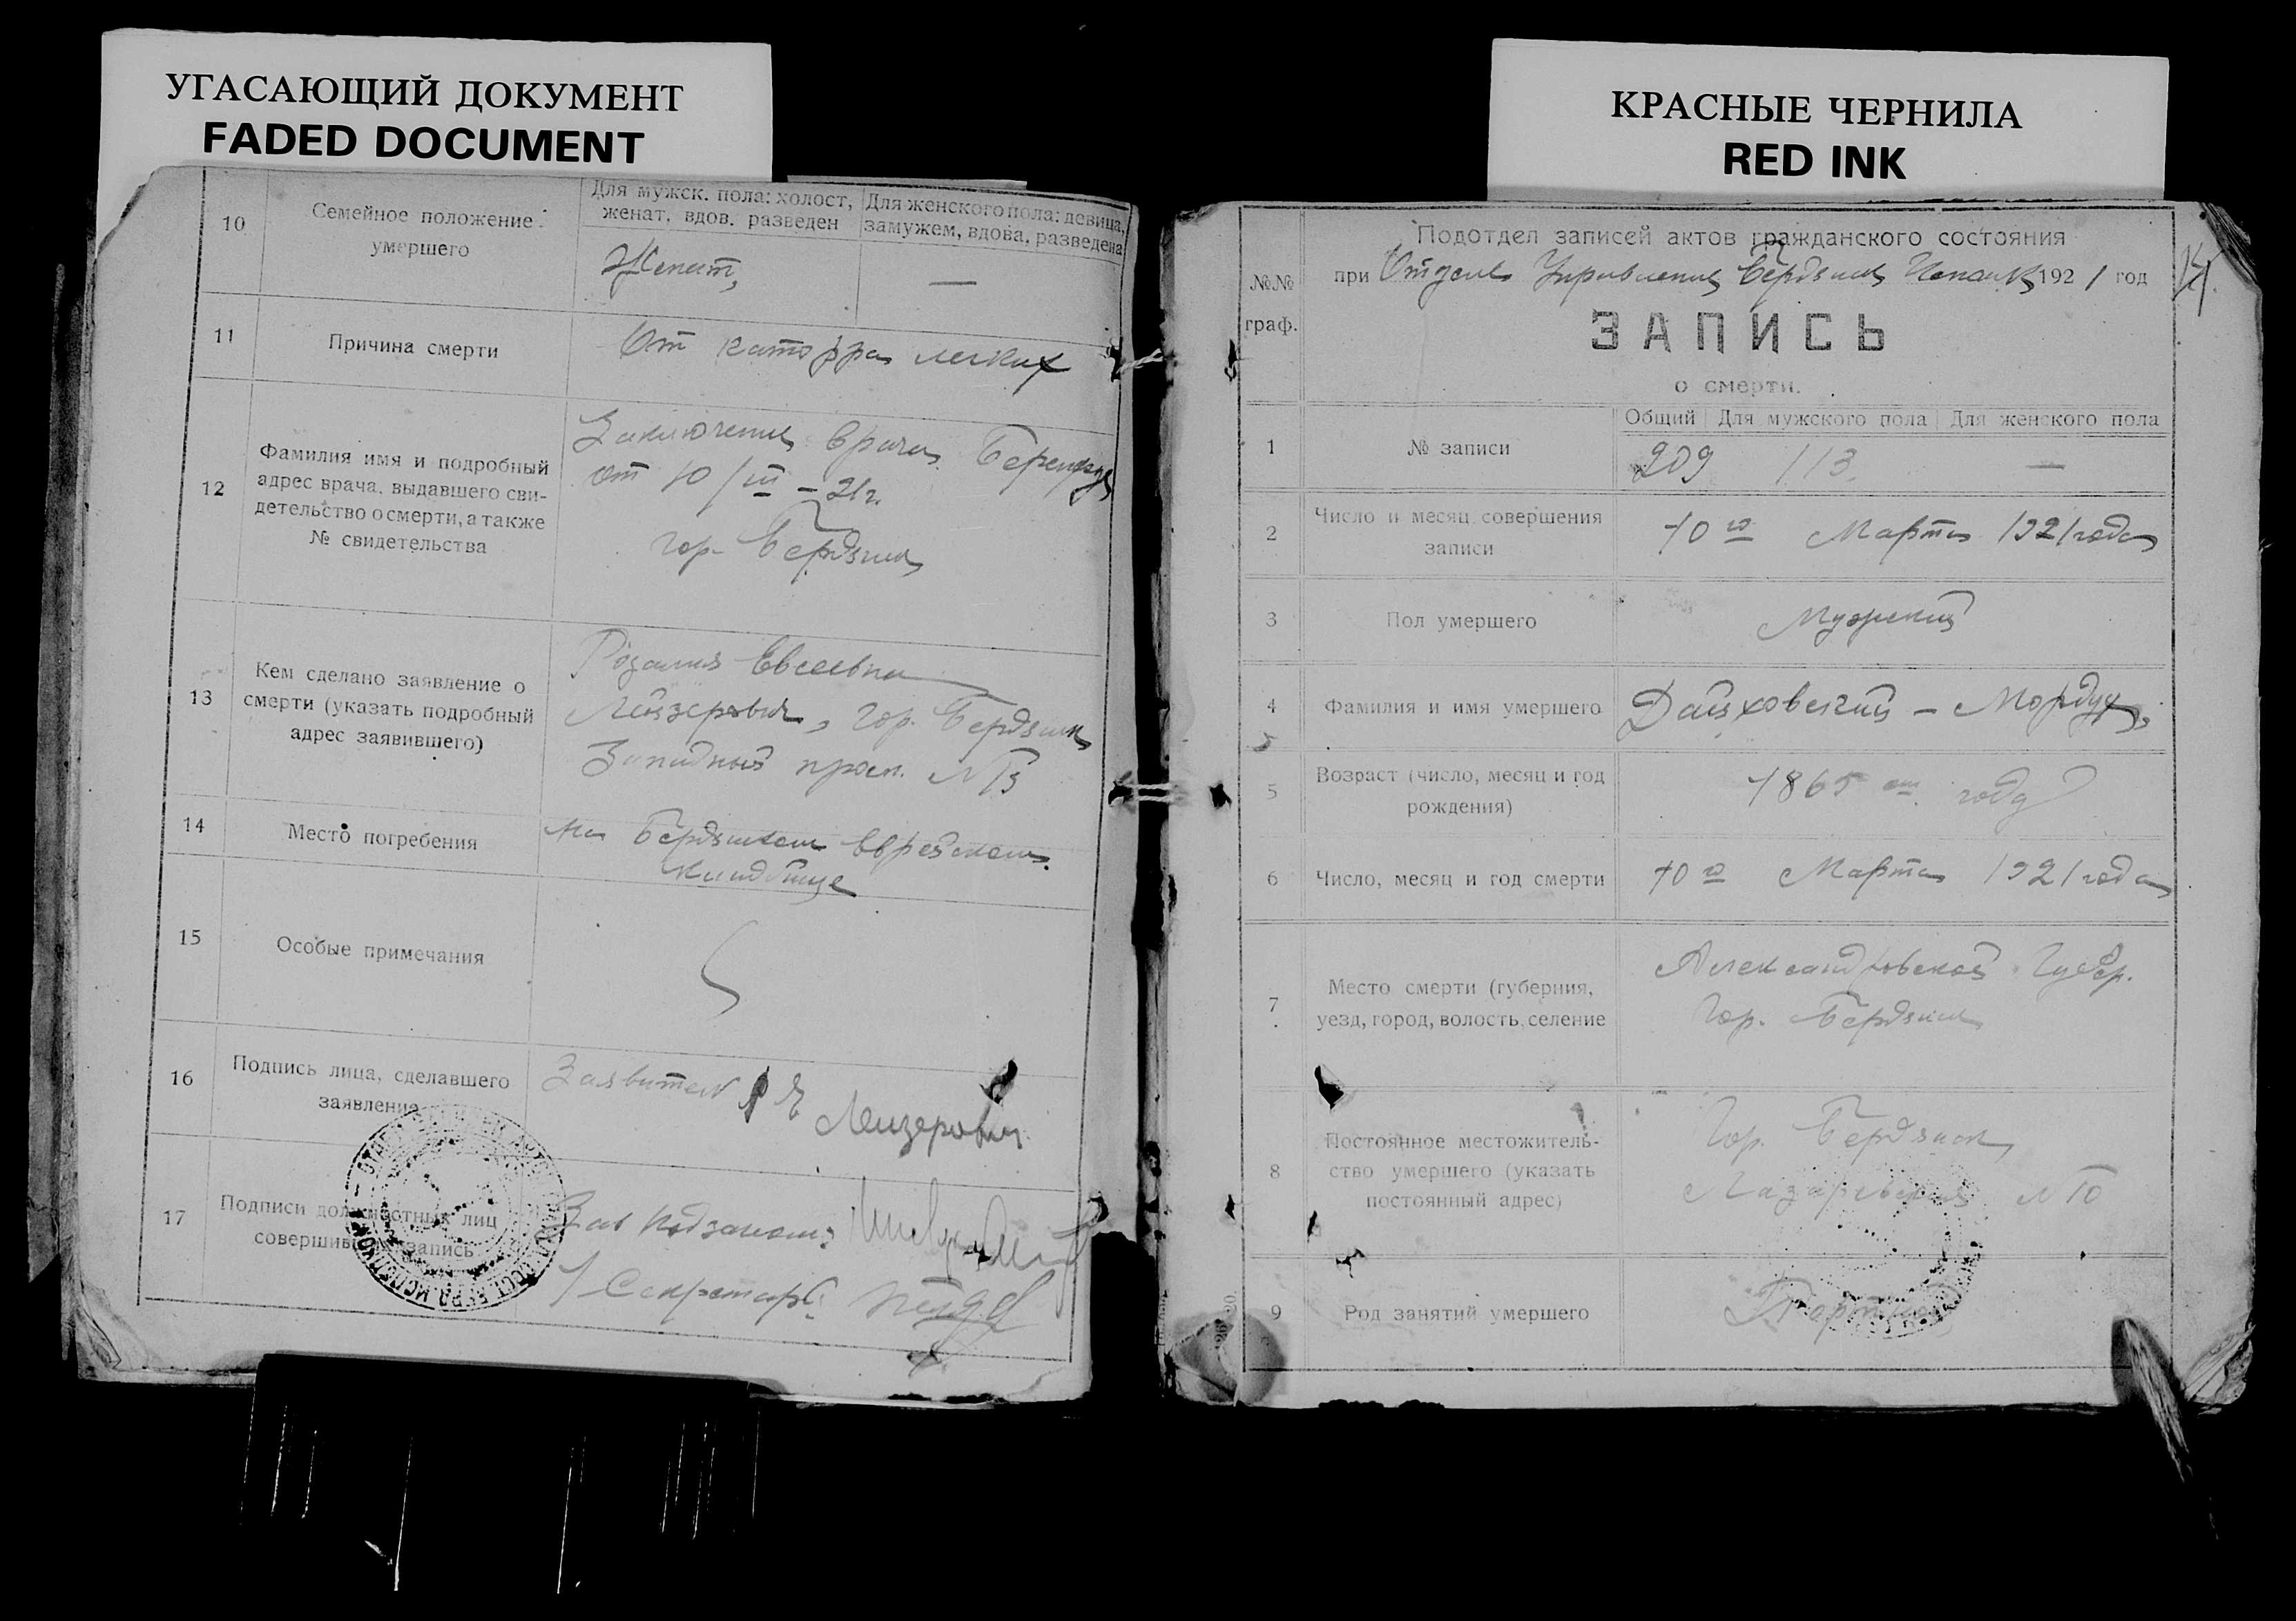 УГАСАЮЩИЙ ДОКУМЕНТ
FADED DOCUMENT
КРАСНЫЕ ЧЕРНИЛА
RED INK
10
Семейное положение
умершего
Для мужск. пола: холост,
женат, вдов. разведен
Для женского пола: девица,
замужем, вдова, разведена
Женат,
—
11
Причина смерти
От каторра легких
12
Фамилия имя и подробный
адрес врача, выдавшего сви-
детельство о смерти, а также
№ свидетельства
Заключение врача
от 10/III – 21г.
гор. Бердянск
13
Кем сделано заявление о
смерти (указать подробный
адрес заявившего)
Розалия Евсеевна
Лейзерович, гор. Бердянск
Западный просп. №
14
Место погребения
на Бердянском Еврейском
кладбище
15
Особые примечания
16
Подпись лица, сделавшего
заявление
Заявител
Лейзерович
17
Подписи должностных лиц
совершивших запись
Зав
Секретарь
Подотдел записей актов гражданского состояния
№№
граф.
при Отделе Управления Бердянск 1921 год
ЗАПИСЬ
о смерти.
1
№ записи
Общий Для мужского пола Для женского пола
209 113. —
2
Число и месяц совершения
записи
10го Марта 1921 года
3
Пол умершего
Мужской
4
Фамилия и имя умершего
Дайховский – Мордух
5
Возраст (число, месяц и год
рождения)
1865 году
6
Число, месяц и год смерти
10го Марта 1921 года
7
Место смерти (губерния,
уезд, город, волость, селение
Александровской Губер.
Гор. Бердянск
8
Постоянное местожитель-
ство умершего (указать
постоянный адрес)
Гор. Бердянск
Лазаревская № 10
9
Род занятий умершего